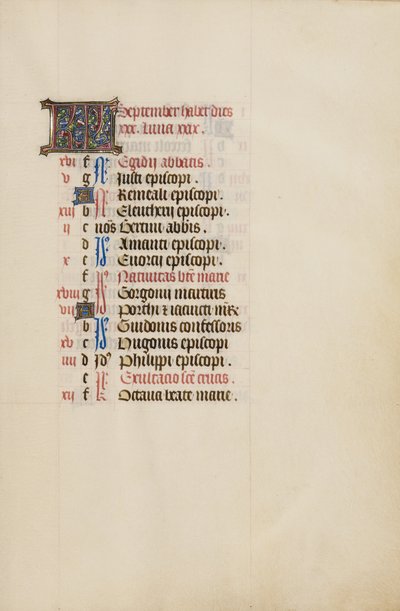 KL September habet dies
xxx. Luna xxx.
xvi f N Egidij abbatis.
v g N Justi episcopi.
A N Remcali episcopi.
xiii b N Eleutherij episcopi.
ii c nōs Bertini abbis.
d Is Amanti episcopi.
x e Is Euorcij episcopi.
f Is Natiuitas bt̄e marie
xviii g Is Gorgonij martiris
vii A Is Porthi & iacincti
b Is Guidonis confessoris
xv c Is Hugonis episcopi
iiii d Jd9 Philippi episcopi.
e kł Exultacio sc̄e crucis.
xii f kł Octaua beate marie.